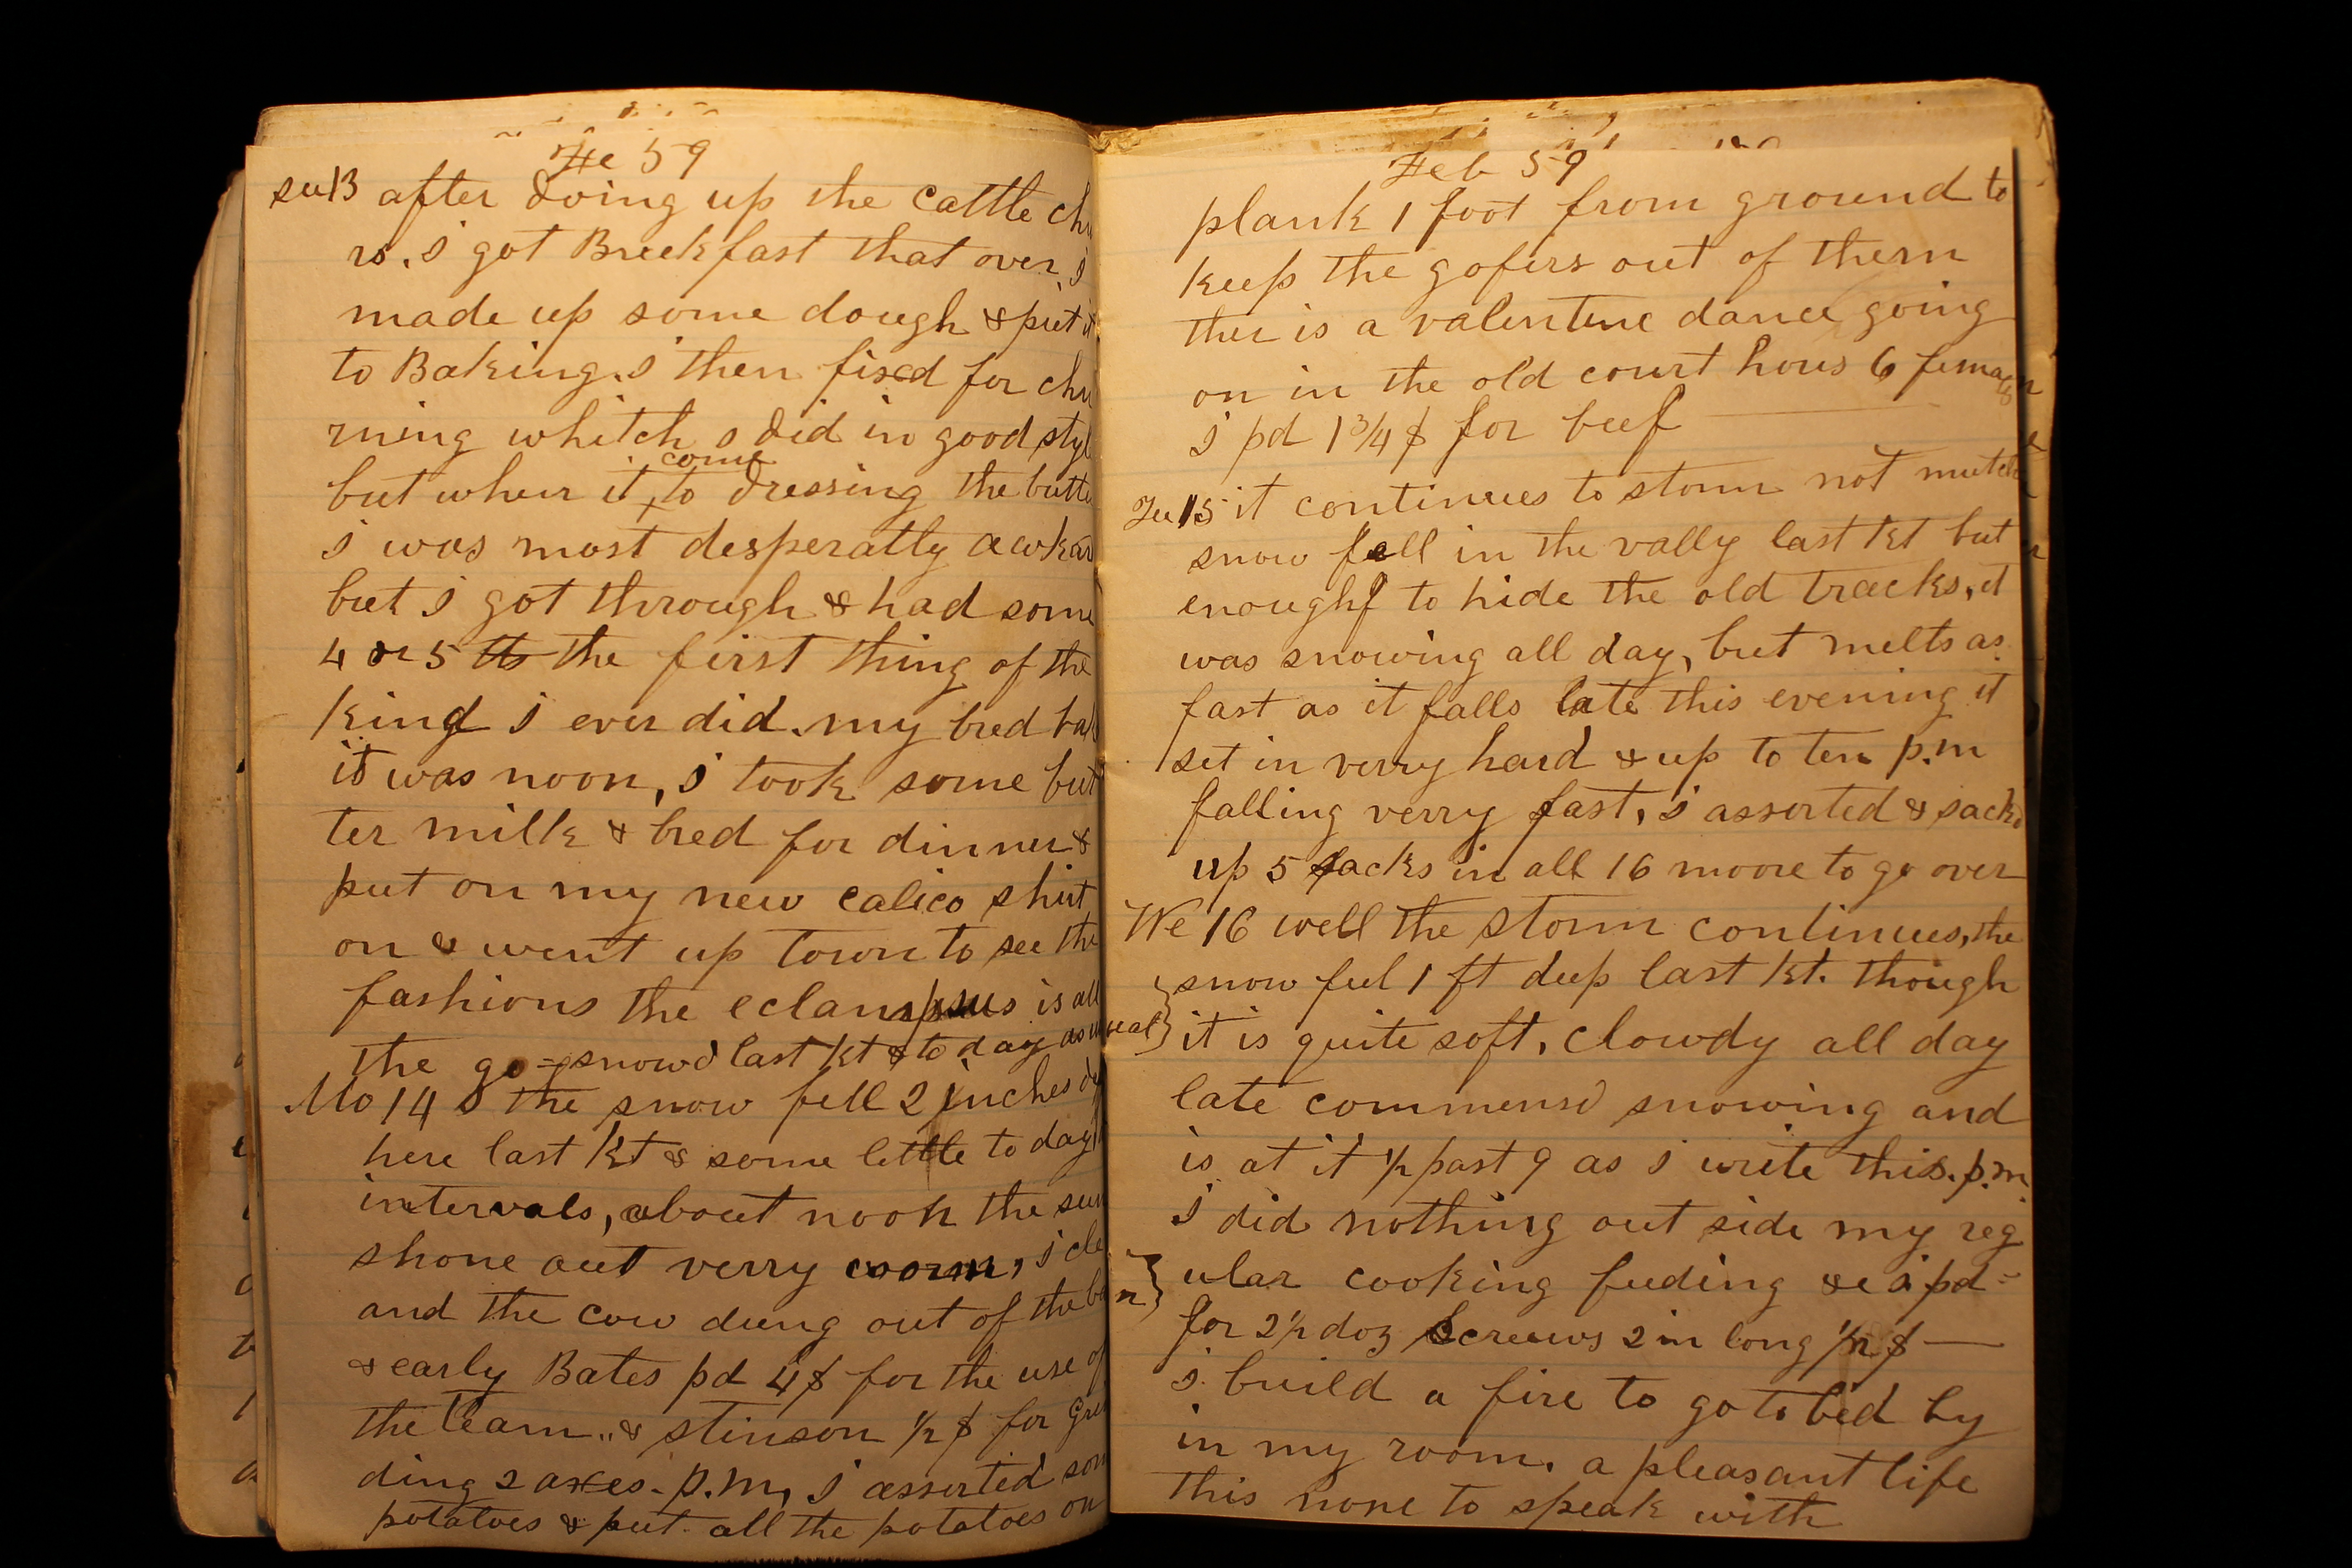 Fe 59
su13 after doing up the cattle cho
rs. i got Breekfast that over, i
made up some dough & put it
to Baking. i then fixed for chu
rning whitch i did in good styl
come
but when it to dressing the butte
i was most desperatly awkar
but i got through & had some
4 or 5 lb the first thing of the
kind i ever did. my bred bak
it was noon, i took some but
ter milk & bred for dinner &
put on my new calico shirt
on & went up town to see the
fashions the is all
the go = snowd last kt & to day as usual
Mo 14 the snow fell 2 inches de
here last kt & some little to day
intervals, about noon the sun
shone out verry worm, i cle
and the cow dung out of the ba
& early Bates pd 4$ for the use of
the team " & stinson 1/2 $ for Grin
ding 2 axes. p.m, i assorted som
potatoes & put all the potatoes on
Feb 59
plank 1 foot from ground to
keep the gofirs out of them
ther is a valentine dance going
on in the old court hous 6
i pd 1 3/4 $ for beef
Tu 15 it continues to storm not mutch
snow fell in the vally last kt but
enough to hide the old tracks, it
was snowing all day, but melts as
fast as it falls late this evening it
set in verry hard & up to ten p.m
falling verry fast, i assorted & sackd
up 5 sacks in all 16 moore to go over
We 16 well the storm continues, the
snow fel 1 ft deep last kt. though
it is quite soft, clowdy all day
late commensd snowing and
is at it 1/2 past 9 as i write this. p.m.
i did nothing out side my reg
ular cooking feeding &c i pd =
n
for 2 1/2 doz screws 2 in long 1/2 $ —
i build a fire to go to bed by
in my room. a pleasant life
this none to speak with